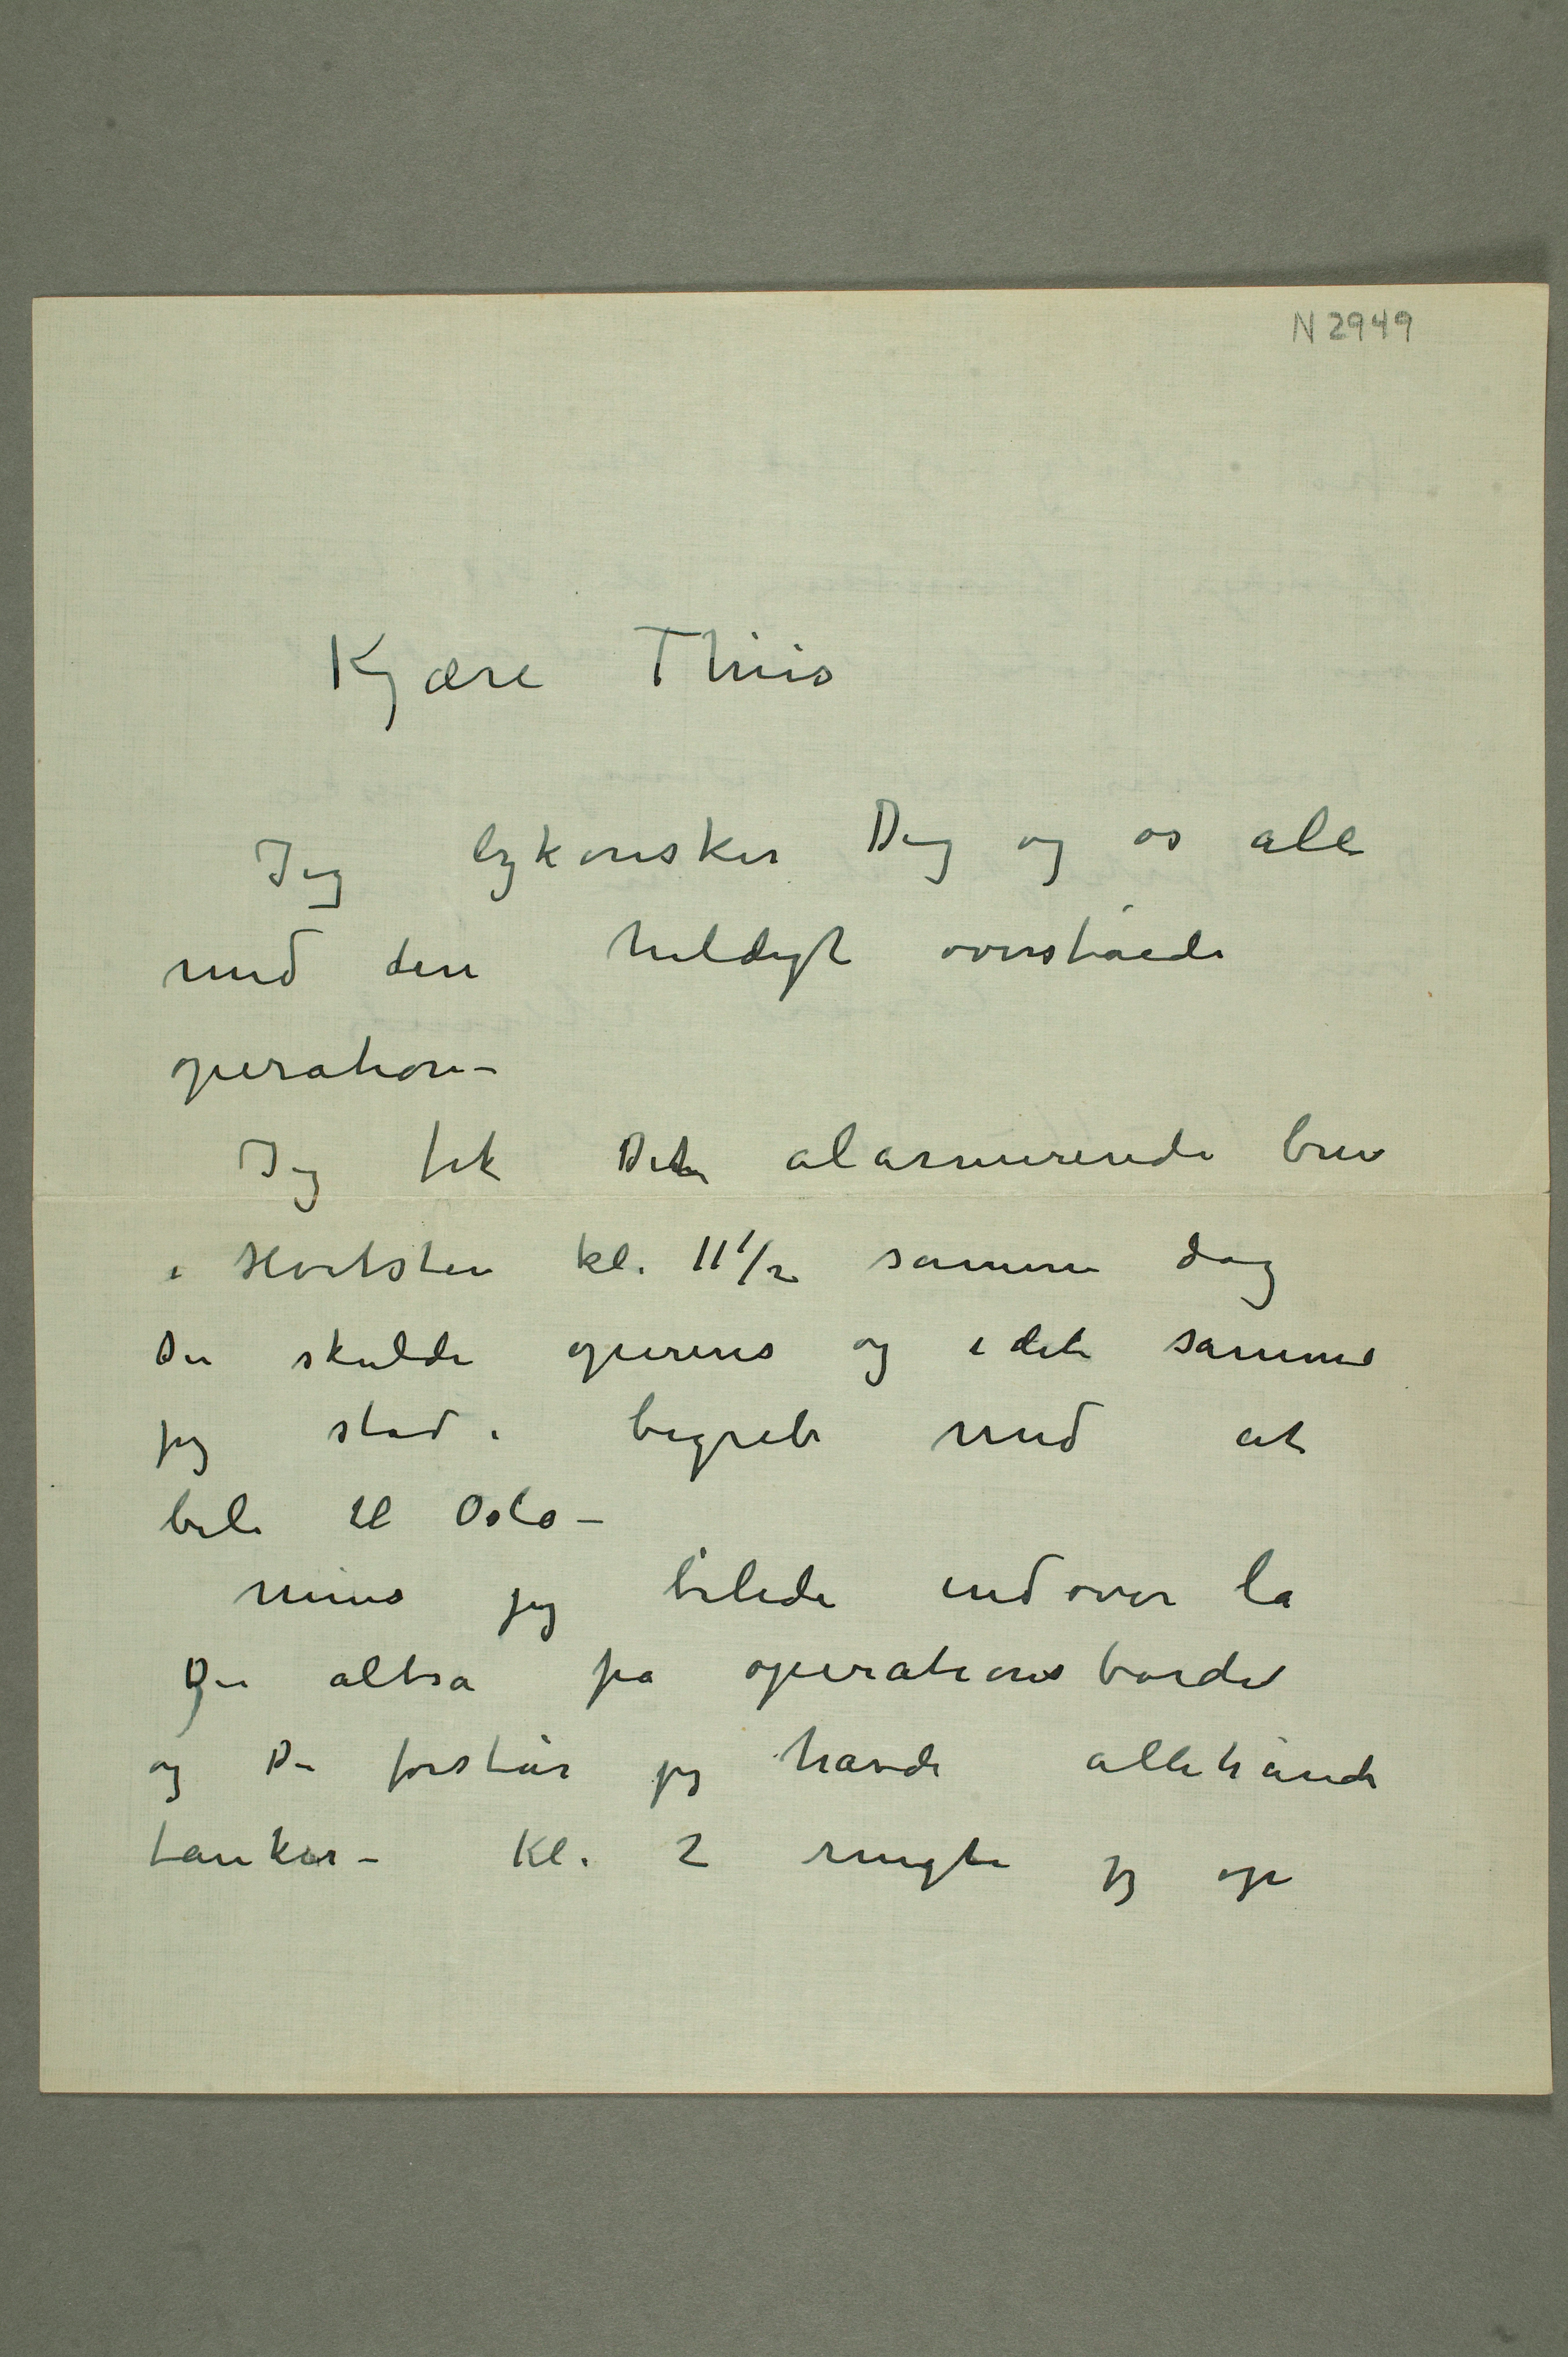 N 2949
Kjære Thiis
Jeg lykønsker Dig og os alle
med den heldigt overståede
operation –
Jeg fik Dit alarmerende brev
i Hvitsten kl. 11 1/2 samme dag
Du skulde opereres og i det samme
jeg stod i begreb med at
bile til Oslo –
mens jeg bilede indover lå
Du altså på operationsbordet
og Du forstår jeg havde allehånde
tanker – Kl. 2 ringte jeg op